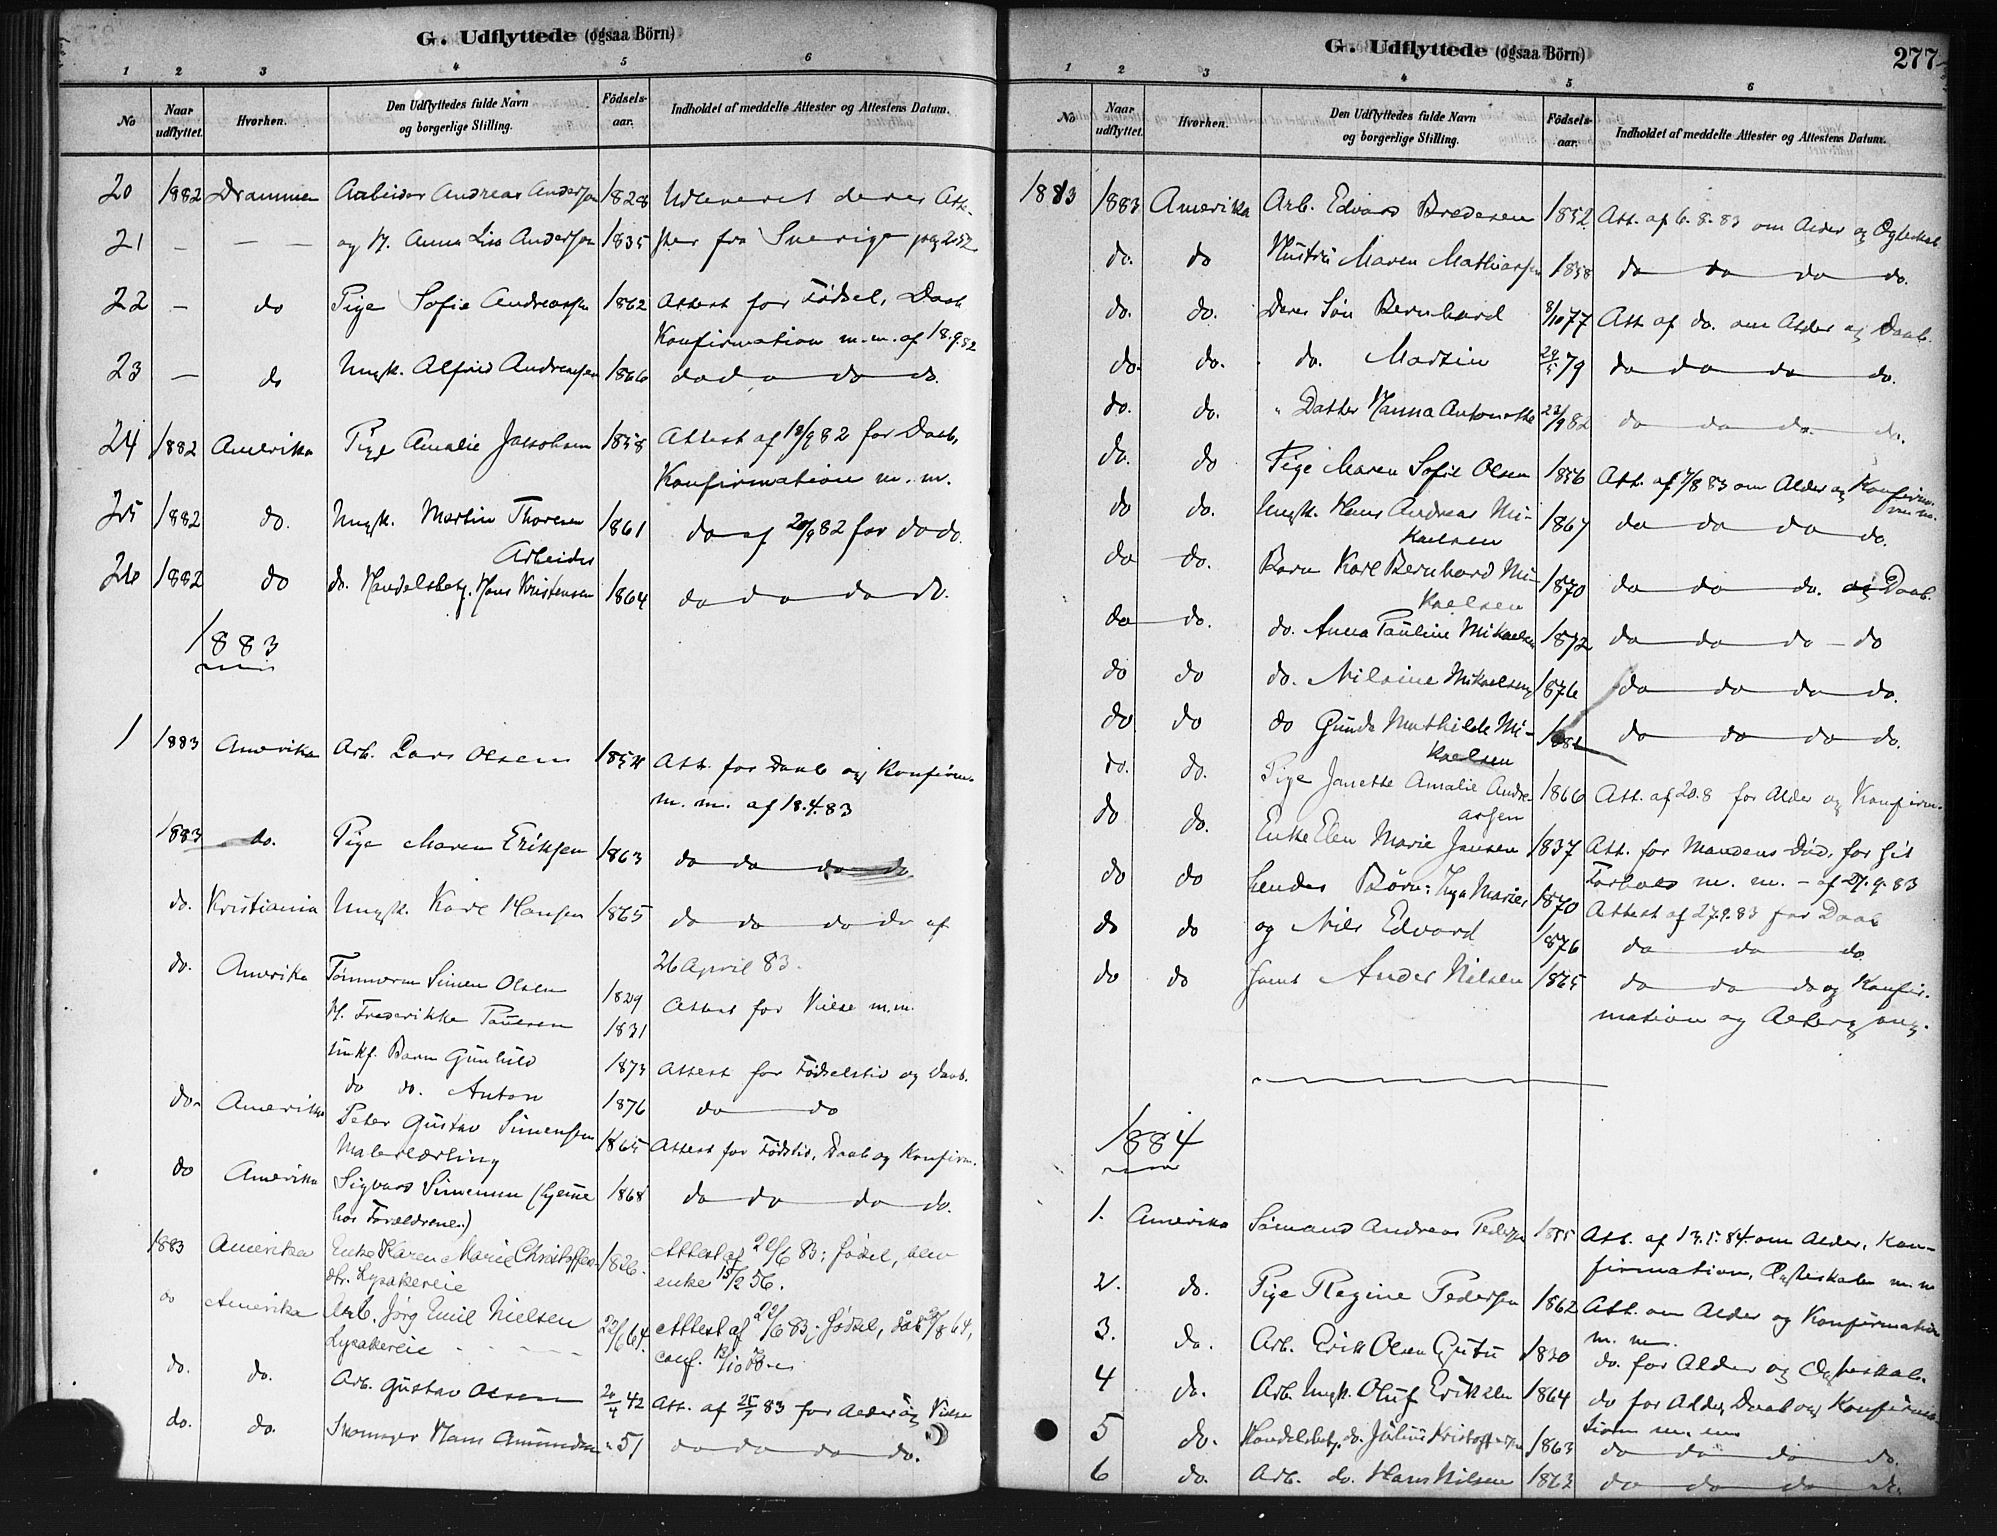 G. Udflyttede (ogsaa Börn)
1 2 3 4 5 6
No Naar udflyttet. Hvorhen. Den Udflyttedes fulde Navn og borgerlige Stilling. Födsels-aar. Indholdet af meddelte Attester og Attestens Datum.
20 1882 Drammen Arbeider Andreas Andersen 1828 Udleveret deres Att-
21 — — — og H. Anna Lisa Andersen 1835 ster fra Sverige pag 252
22 — do Pige Sofie Andreassen 1862 Attest for Fødsel, Daab
Konfirmation m.m. af 18.9.82
23 — do Ungk. Alfred Andreassen 1866 do do do do.
24 1882 Amerika Pige Amalie Jacobsen 1858 Attest af 18/9 82 for Daab,
Konfirmation m.m.
25 1882 do. Ungk. Martin Thoresen 1861 do af 20/9 82 for do do.
Arbeider
26 1882 do do. Handelsbetj. Hans Kristensen 1864 do do do do.
1883
1 1883 Amerika Arb. Lars Olsen 1854 Att. for Daab og Konfirm.
m.m. af 18.4.83
1883 do. Pige Maren Eriksen 1863 do do do do
do. Kristiania Ungk. Karl Hansen 1865 do do do do af
26 April 83.
do. Amerika Tømmerm Simen Olsen 1829 Attest for Vielse m.m.
H. Frederikke Paulsen 1831
ukf. Barn Gunhild 1873 Attest for Fødselstid og Daab.
do do. Anton 1876 do do
do. Amerika Peter Gustav Simensen 1865 Attest for Fødstid, Daab og Konfirm.
Malerlærling
do Amerika Sigvard Simensen (hjemme 1868 do do do do.
hos Forældrene.)
1883 Amerika Enke Karen Marie Christoffers- 1826. Attest af 20/6 83: fødsel, blev
dtr. Lysakereie enke 15/2 56.
do Amerika Arb. Jørg Emil Nielsen 22/6 64. Attest af 22/6 83: fødsel, dåb /8 64,
Lysakereie conf. /10
do. do. Arb. Gustav Olsen 20/4 42 Att. af 25/7 83 for Alder og Vielse
do. do. Skomager Hans Amundsen - 51 do do do do.
G. Udflyttede (ogsaa Börn) 277
1 2 3 4 5 6
No Naar udflyttet. Hvorhen. Den Udflyttedes fulde Navn og borgerlige Stilling. Födsels-aar. Indholdet af meddelte Attester og Attestens Datum.
1883 1883 Amerika Arb. Edvard Bredesen 1852 Att. af 6.8.83 om Alder og Ægteskab
do. do Hustru Maren Mathiassen 1858 do do do do.
do. do. Deres Søn Bernhard 8/10 77 Att. af do. om Alder og Daab.
do. do. do. Martin 29/5 79 do do do do.
do. do. " Datter Hanna Antonette 22/9 82 do do do. do.
do. do Pige Maren Sofie Olsen 1856 Att. af 7/8 83 om Alder og Konfirm.
m.m.
do do. Ungk. Hans Andreas Mi- 1867 do do do do.
kaelsen
do do. Barn Karl Bernhard Mi- 1870 do do do. og Daab.
kaelsen
do do. do. Anna Pauline Mikaelsen 1872 do do do do
do do do. Nilsine Mikaelsen 1876 do do do do.
do do do Gunda Mathilde Mi- 1881 do do do do.
kaelsen
do. do. Pige Janette Amalie Andre- 1866 Att. af 20.8 for Alder og Konfirm.
assen
do do. Enke Elen Marie Jansen 1837 Att. for Mandens Død, for sit
do do hendes Børn: Inga Marie 1870 Forhold m.m. - af 27.9.83
Attest af 27.9.83 for Daab
do do og Nils Edvard 1876 do do do
do do samt Anders Nilsen 1865 do do do og Konfir-
mation og
1884
1. Amerika Sømand Andreas Pedersen 1855 Att. af 13.5.84 om Alder, Kon-
firmation, Ægteskab m.m
2. do. Pige Regine Pedersen 1862 Att. om Alder og Konfirmation
m.m.
3. do. Arb. Erik Olsen Gutu 1830 do. for Alder og Ægteskab.
4 do. Arb. Ungk. Oluf Eriksen 1864 do for Alder, Daab og Konfirma-
tion m.m
5 do. Handelsbetj. do. Julius Kristoffersen 1863 do do do do.
6 do. Arb. do. Hans Nilsen 1863 do do do do.